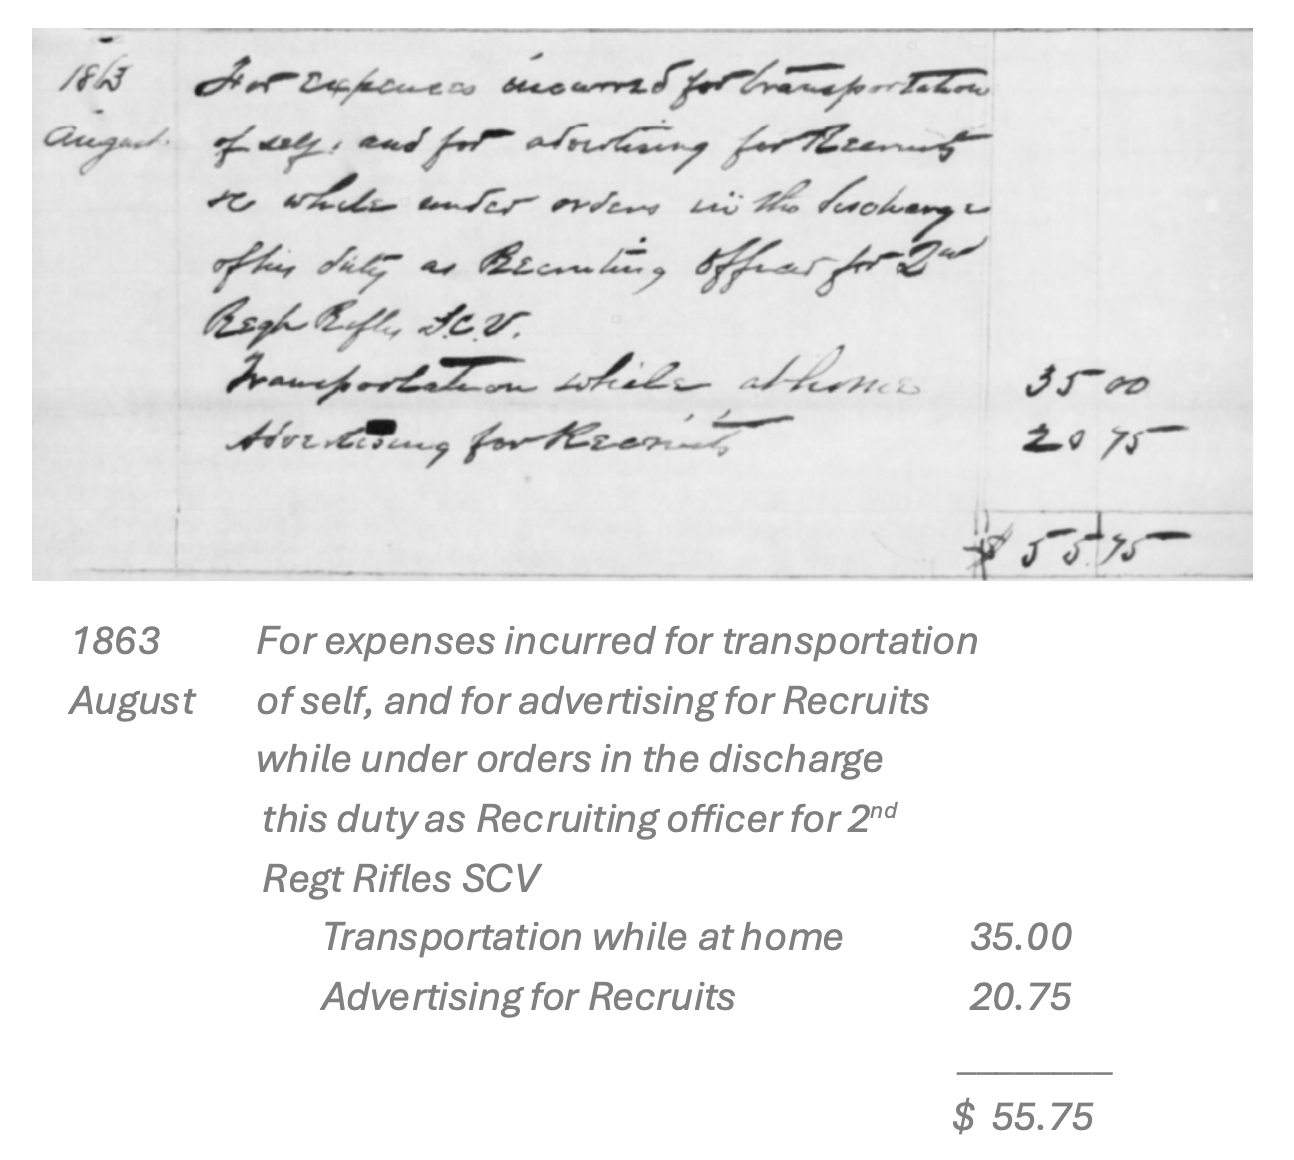 1863 For expenses incurred for transportation
August of self, and for advertising for Recruits
&c while under orders in the discharge
of his duty as Recruiting officer for 2nd
Regt Rifles S.C.V.
Transportation while at home 35 00
Advertising for Recruits 20 75
$ 55 75
1863 For expenses incurred for transportation
August of self, and for advertising for Recruits
while under orders in the discharge
this duty as Recruiting officer for 2nd
Regt Rifles SCV
Transportation while at home 35.00
Advertising for Recruits 20.75
$ 55.75